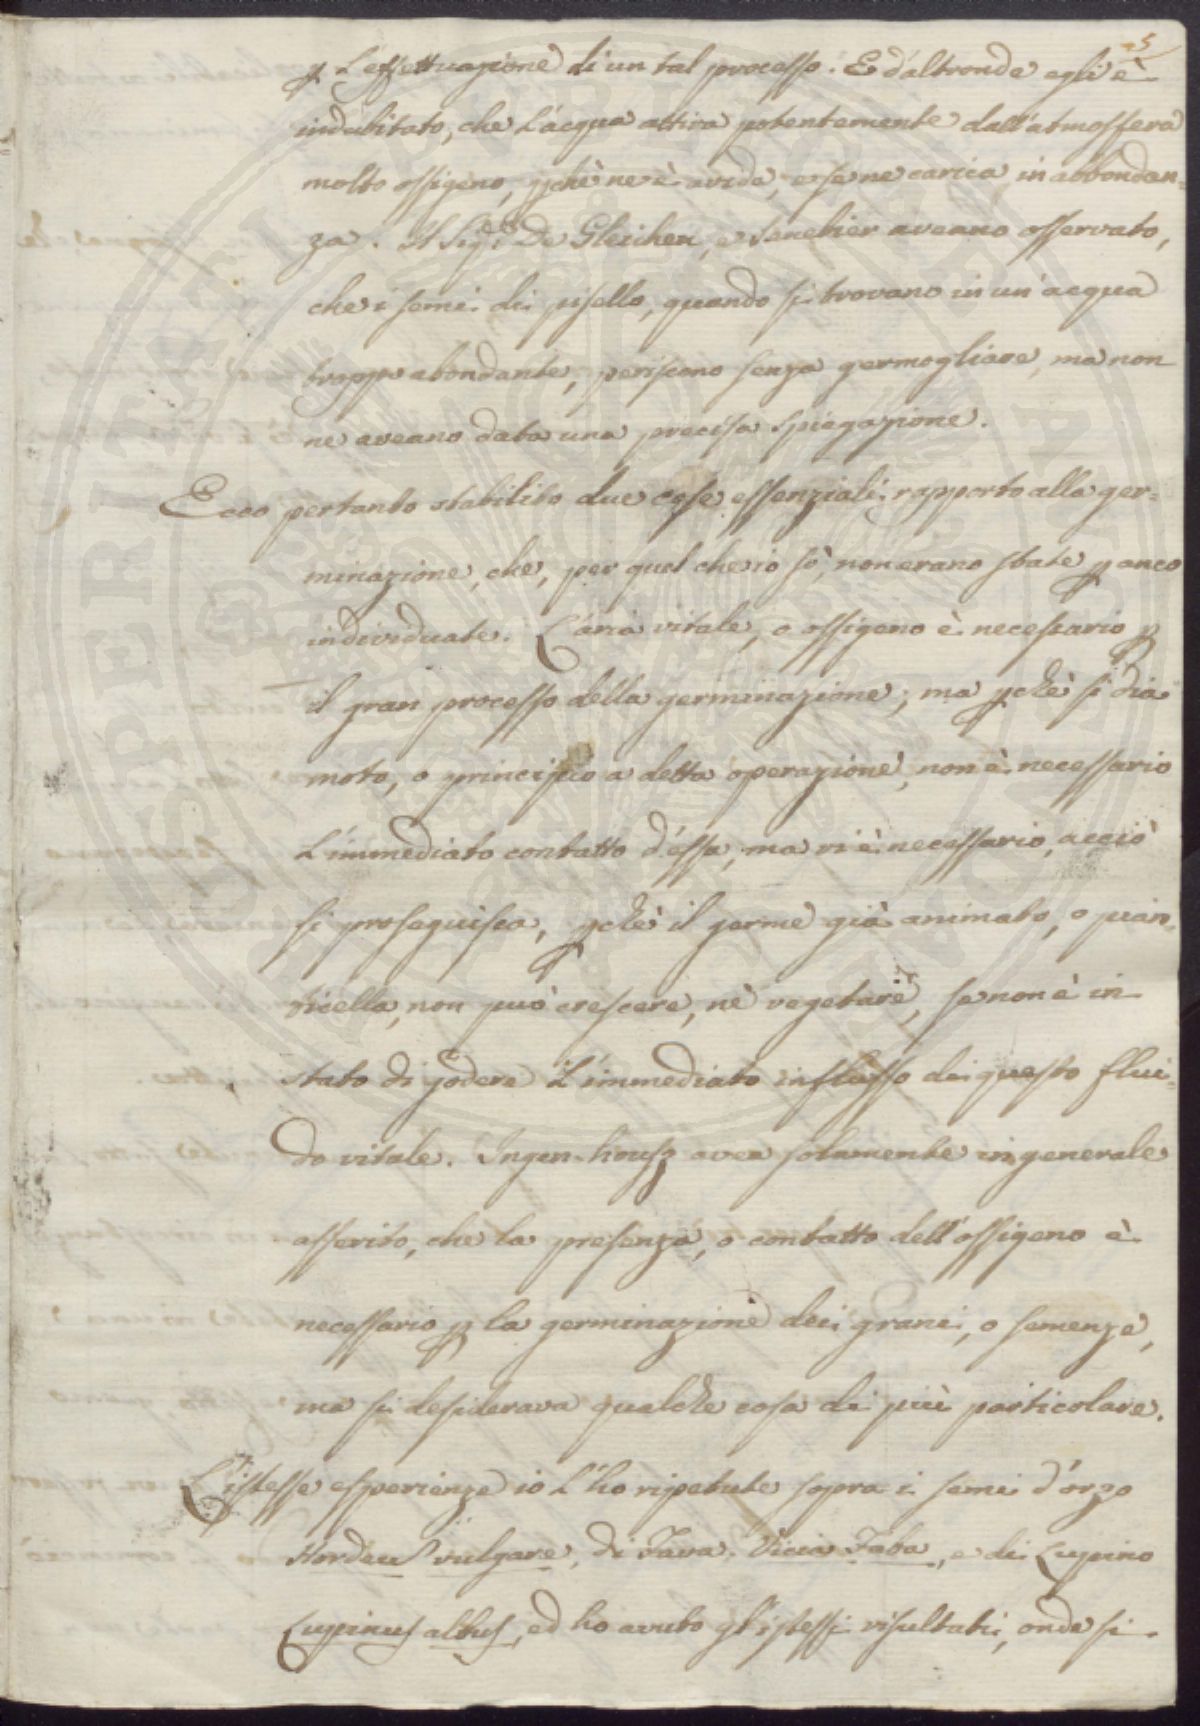 5
p L'effettuazione di un tal processo. E d'altronde egli è
indubitato, che l'acqua attira potentemente dall'atmosfera
molto ossigeno, pchè ne è avida, e se ne carica in abbondan=
za. Il Sigr De Gleichen, e Senebier aveano osservato,
che i semi di pisello, quando si trovano in un'acqua
troppo abondante, periscono senza germogliare, ma non
ne aveano data una precisa spiegazione.
Ecco pertanto stabilito due cose essenziali rapporto alla ger=
minazione, che, per quel che io sò, non erano state p anco
individuate. L'aria vitale, o ossigeno è necessario p
il gran processo della germinazione; ma pchè si dia
moto, o principio a detta operazione, non è necessario
L'immediato contatto d'essa, ma vi è necessario, acciò
si proseguisca, pchè il germe già animato, o pian=
ticella, non può crescere, nè vegetare, se non è in
stato di godere L'immediato influsso di questo flui=
do vitale. Ingen-housz avea solamente in generale
asserito, che la presenza, o contatto dell'ossigeno è
necessario p la germinazione dei grani, o semenze,
ma si desiderava qualche cosa di più particolare.
L'istesse esperienze io L'ho ripetute sopra i semi d'orzo
Hordeu vulgare, di Fava. Vicia Faba, e di Lupino
Lupinus albus, ed ho avuto gl'istessi risultati, onde si